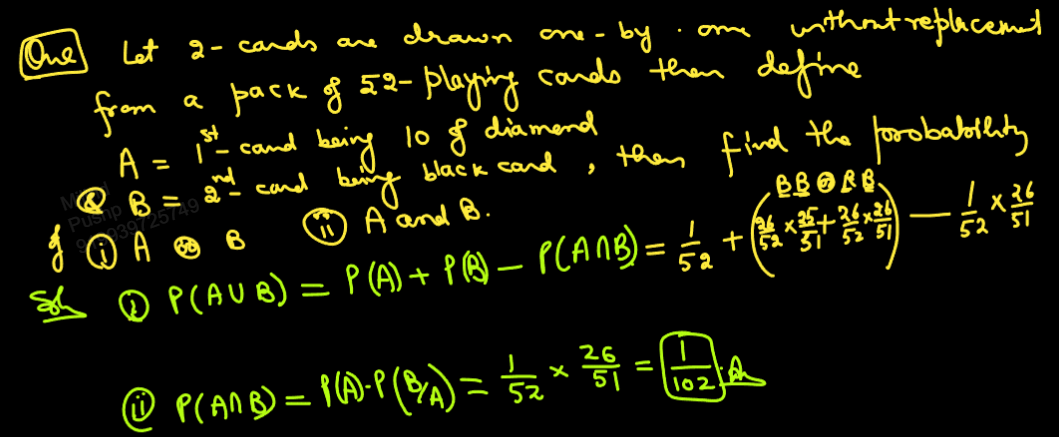 Que Let 2-cards are drawn one-by-one without replacement
from a pack of 52-playing cards then define
A = 1st-card being 10 of diamond
& B = 2nd-card being black card, then find the probability
of (i) A or B (ii) A and B.
Sol (i) P(A∪B) = P(A) + P(B) − P(A∩B) = 1/52 + (BB or RB 26/52 × 25/51 + 26/52 × 26/51) − 1/52 × 26/51
(ii) P(A∩B) = P(A)·P(B/A) = 1/52 × 26/51 = 1/102 Ans